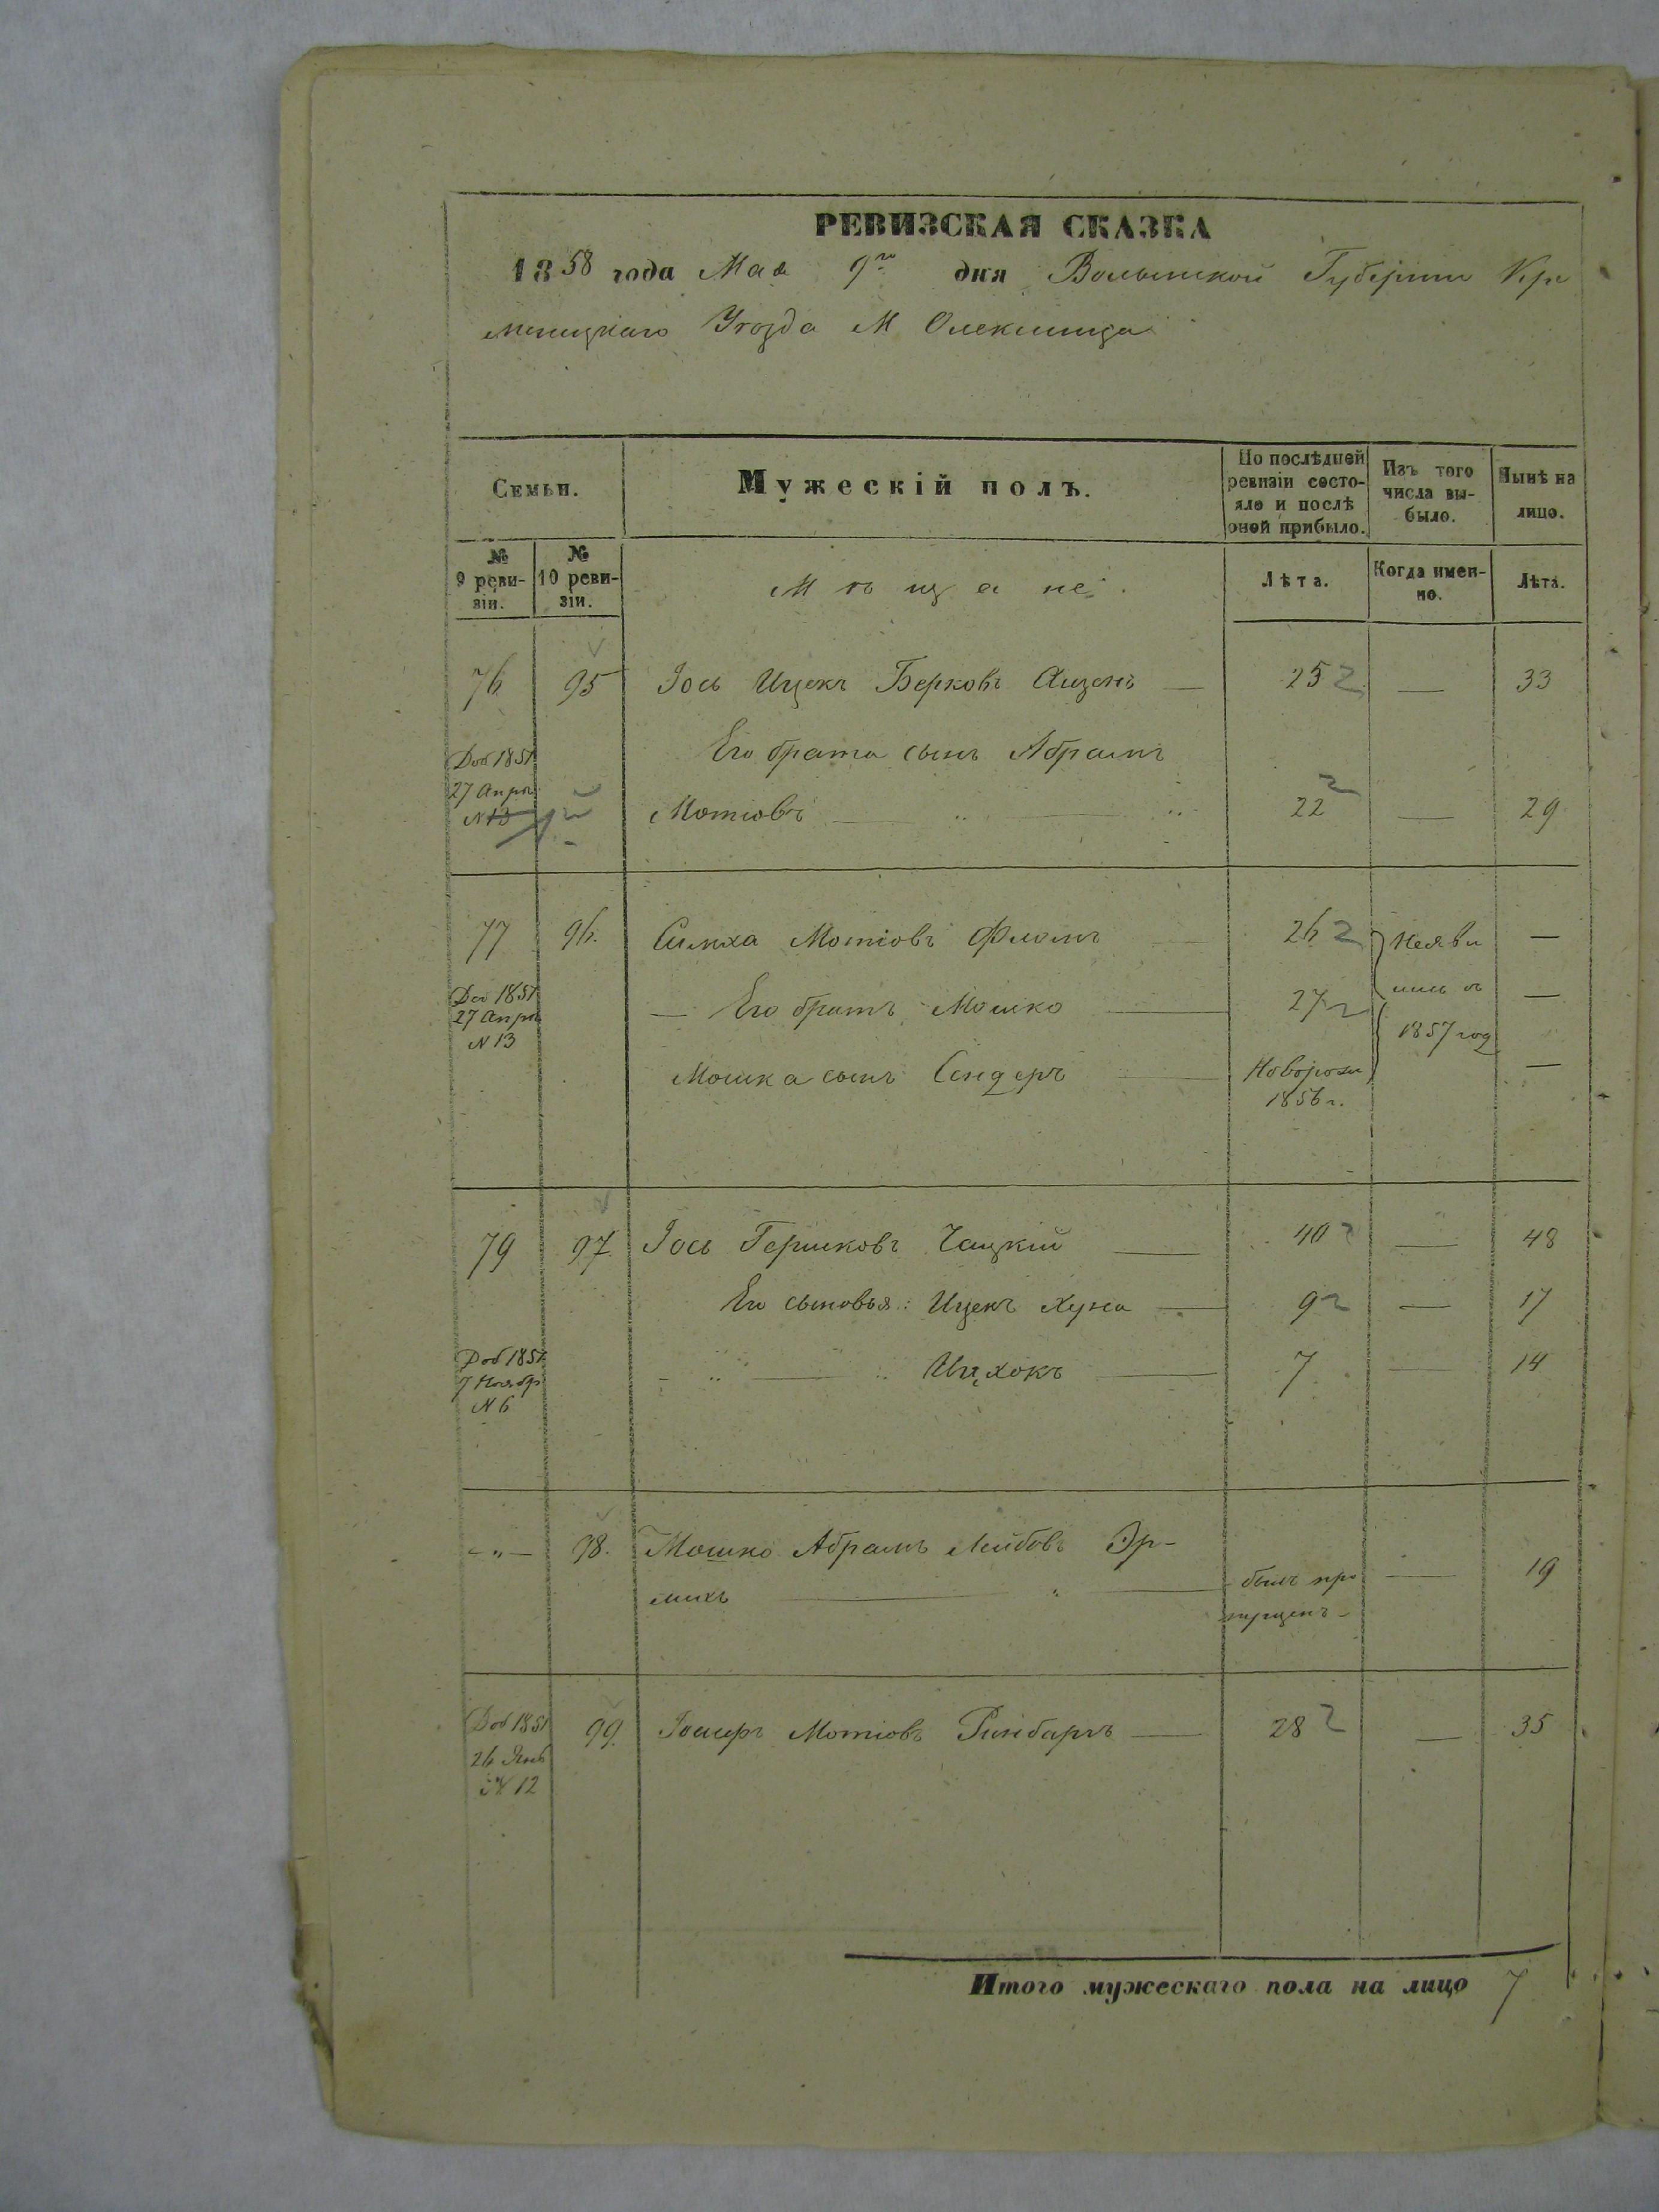 РЕВИЗСКАЯ СКАЗКА
1858 года Мая 9го дня Волынской Губернии Кре
менецкаго Уезда М Олексинца
Семьи.
Мужескій полъ.
По послѣдней ревизіи состо-
яло и послѣ оной прибыло.
Изъ того числа вы-
было.
Нынѣ на лицо.
№ 9 реви-
зіи.
№ 10 реви-
зіи.
Мѣщане
Лѣта.
Когда имен-
но.
Лѣта.
76 95 Іось Ицекъ Берковъ — 25 — 33
Доб 1851 Его брата сынъ Абрамъ
27 Апрѣ
N 13 Мотіовъ 22 — 29
77 96. Симха Мотіовъ 26 Неяви —
Доб 1851 — Его братъ Мошко 27 лись съ —
27 Апрѣ
N 13
1857 год
Мошка сынъ Сендеръ Новорожд —
1856 г.
79 97. Іось Гершковъ Чацкій — 40 — 48
Его сыновья: Ицекъ Хуна — 9 — 17
Доб 1851
7 Ноябр
N 6
Ицхокъ — 7 — 14
— " — 98. Мошко Абрамъ Лейбовъ Эр-
лихъ — былъ про — 19
пущенъ —
Доб 1851 99. Мотіовъ — 28 — 35
26 Янв
N 12
Итого мужескаго пола на лицо 7